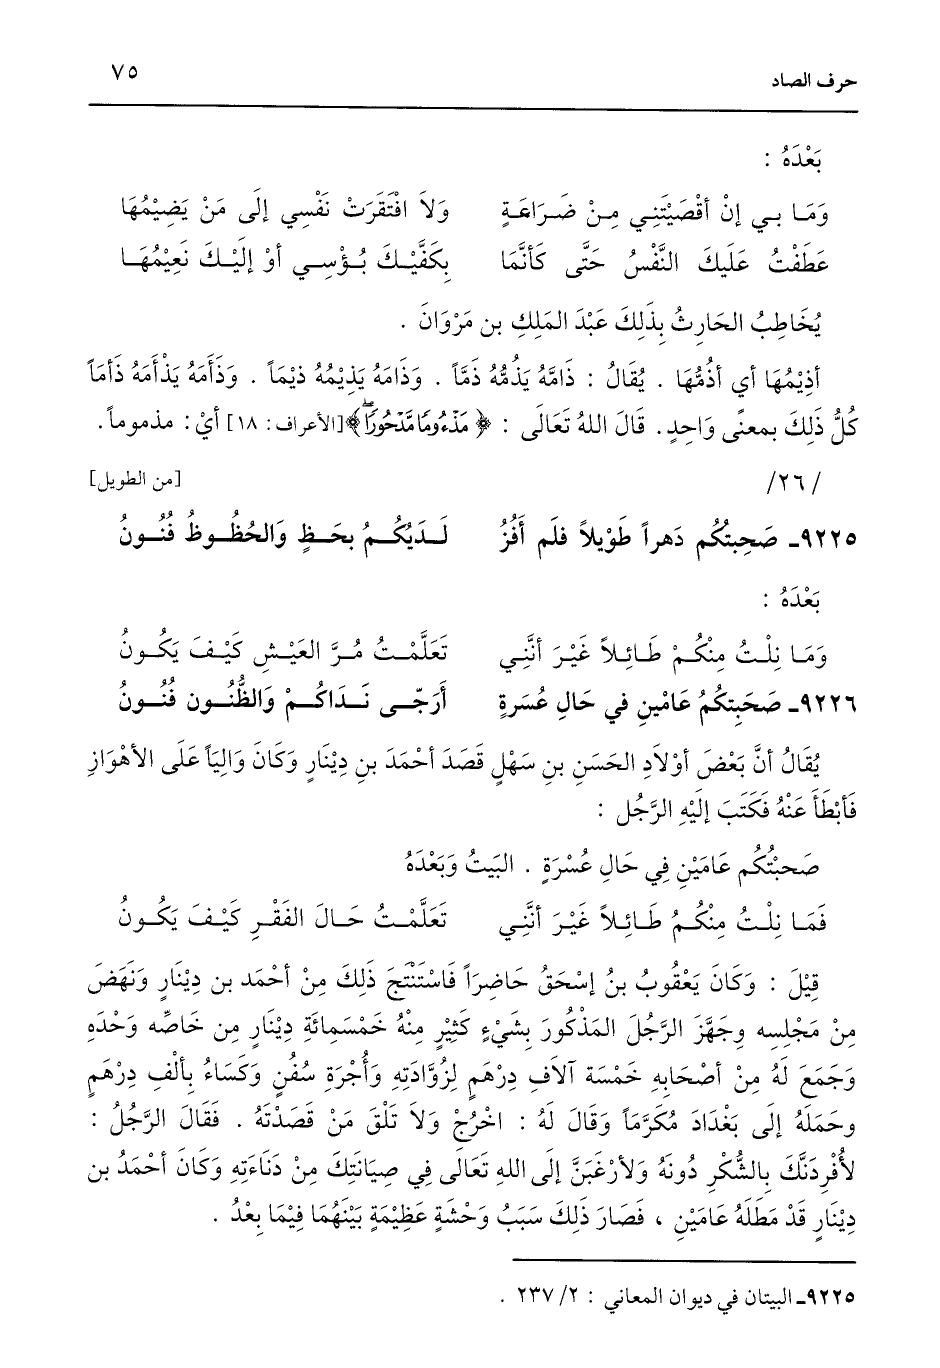 حرف الصاد ٧٥
بَعْدَهُ :
وَمَا بِي إنْ أقْصَيْتَنِي مِنْ ضَرَاعَةٍ وَلاَ افْتَقَرَتْ نَفْسِي إلَى مَنْ يَضِيْمُهَا
عَطَفْتُ عَلَيكَ النَّفْسُ حَتَّى كَأنَّمَا بِكَفَّيْكَ بُؤْسِي أوْ إلَيْكَ نَعِيْمُهَا
يُخَاطِبُ الحَارِثُ بِذَلِكَ عَبْدَ المَلِكِ بن مَرْوَانَ .
أذِيْمُهَا أي أذُمُّهَا . يُقَالُ : ذَامَّهُ يَذُمُّهُ ذَمَّاً . وَذَامَهُ يَذِيْمُهُ ذيْماً . وَذَأمَهُ يَذْأمَهُ ذَأمَاً
كُلُّ ذَلِكَ بِمعنًى وَاحِدٍ. قَالَ اللهُ تَعَالَى : ﴿ مَذْءُومًا مَّدْحُورًا ۖ﴾[الأعراف: ١٨] أيْ: مذموماً.
/٢٦/ [من الطويل]
٩٢٢٥ـ صَحِبتُكُم دَهراً طَوْيلاً فلَم أَفُزُ لَـدَيْكُـمُ بِحَـظٍ وَالحُظُـوظُ فُنُـونُ
بَعْدَهُ :
وَمَا نِلْتُ مِنْكُـمْ طَائِـلاً غَيْرَ أنَّنِي تَعَلَّمْـتُ مُـرَّ العَيْـشِ كَيْـفَ يَكُونُ
٩٢٢٦ـ صَحَبِتكُمُ عَامْينِ في حَالِ عُسَرةٍ أَرَجّـى نَـدَاكُـمْ وَالظُّنُـون فُنُـونُ
يُقَالُ أنَّ بَعْضَ أوْلاَدِ الحَسَنِ بنِ سَهْلٍ قَصَدَ أحْمَدَ بن دِيْنَارٍ وَكَانَ وَالِيَاً عَلَى الأهْوَازِ
فَأبْطَأ عَنْهُ فَكَتَبَ إلَيْهِ الرَّجُل :
صَحبْتُكُم عَامَيْنِ فِي حَال عُسْرَةٍ . البَيتُ وَبَعْدَهُ
فَمَا نِلْتُ مِنْكُـمُ طَائِـلاً غَيْرَ أنَّنِي تَعَلَّمْـتُ حَـالَ الفَقْـرِ كَيْـفَ يَكُـونُ
قِيْلَ : وَكَانَ يَعْقُوبُ بنُ إسْحَقُ حَاضِرَاً فَاسْتَنْتَجَ ذَلِكَ مِنْ أحْمَد بن دِيْنَارٍ وَنَهَضَ
مِنْ مَجْلِسِه وجَهَّزَ الرَّجُلَ المَذْكُورَ بِشَيْءٍ كَثِيْرٍ مِنْهُ خَمْسَمِائَةِ دِيْنَارٍ مِن خَاصِّه وَحْدَهِ
وَجَمَعَ لَهُ مِنْ أصْحَابِهِ خَمْسَة آلاَفِ دِرْهَم لِزُوَّادَتِهِ وَأُجْرَةِ سُفُنٍ وَكَسَاءُ بِألْفِ دِرْهَمٍ
وحَمَلَهُ إلَى بَغْدَادَ مُكَرَّمَاً وَقَالَ لَهُ : اخْرُجْ وَلاَ تَلْقَ مَنْ قَصَدْتَهُ . فَقَالَ الرَّجُلُ :
لأُفْرِدَنَّكَ بِالشُّكْرِ دُونَهُ وَلأرْغَبَنَّ إلَى اللهِ تَعَالَى فِي صِيَانَتِكَ مِنْ دَنَاءَتِهِ وَكَانَ أحْمَدُ بن
دِيْنَارٍ قَدْ مَطَلَهُ عَامَيْنِ ، فَصَارَ ذَلِكَ سَبَبُ وَحْشَةٍ عَظِيْمَةٍ بَيْنَهُمَا فِيْمَا بعْدُ .
٩٢٢٥ـ البيتان في ديوان المعاني : ٢/ ٢٣٧ .